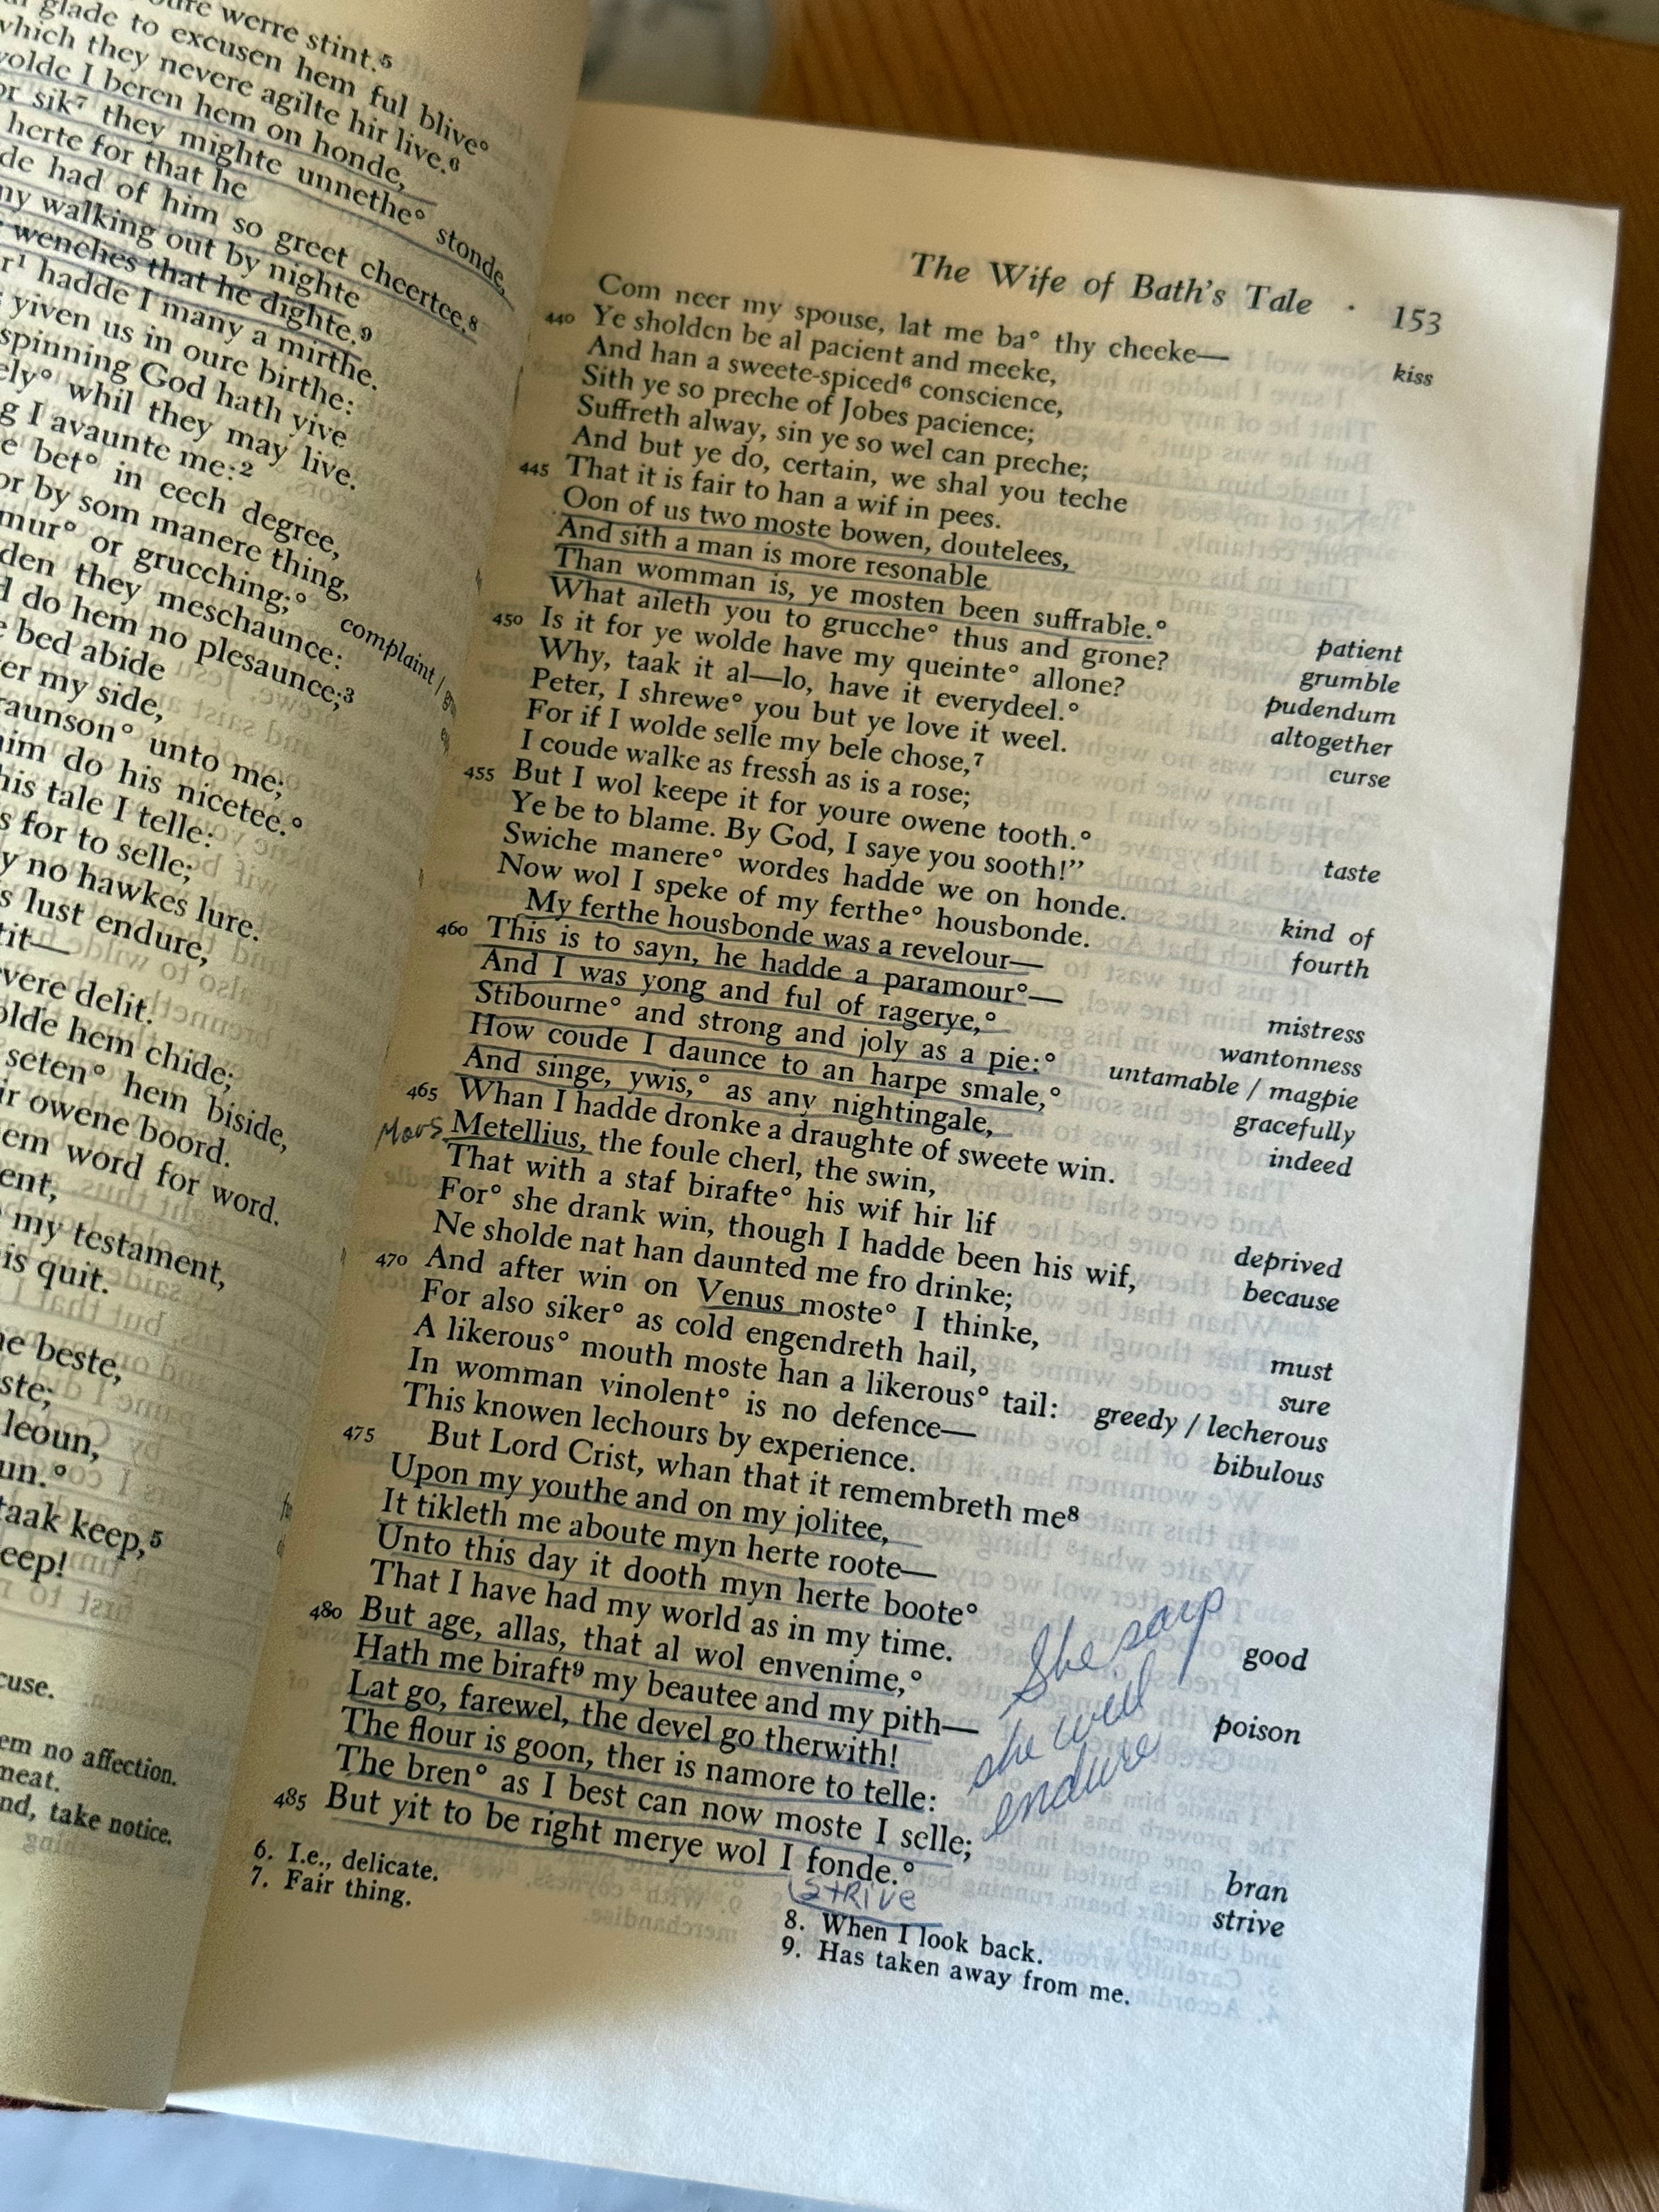 oure werre stint.⁵
glade to excusen hem ful blive°
which they nevere agilte hir live.⁶
wolde I beren hem on honde,
or sik⁷ they mighte unnethe° stonde,
herte for that he
de had of him so greet cheertee.⁸
my walking out by nighte
wenches that he dighte.⁹
r¹ hadde I many a mirthe.
yiven us in oure birthe:
spinning God hath yive
ely° whil they may live.
g I avaunte me:²
e bet° in eech degree,
or by som manere thing,
mur° or grucching;° complaint /
den they meschaunce:
d do hem no plesaunce;³
e bed abide
er my side,
raunson° unto me;
him do his nicetee.°
his tale I telle:
s for to selle;
y no hawkes lure.
s lust endure,
tit—
vere delit.
olde hem chide;
seten° hem biside,
ir owene boord.
em word for word.
ent,
my testament,
is quit.
he beste,
ste;
leoun,
un.°
taak keep,⁵
eep!
cuse.
em no affection.
meat.
nd, take notice.
The Wife of Bath's Tale · 153
Com neer my spouse, lat me ba° thy cheeke— kiss
440 Ye sholden be al pacient and meeke,
And han a sweete-spiced⁶ conscience,
Sith ye so preche of Jobes pacience;
Suffreth alway, sin ye so wel can preche;
And but ye do, certain, we shal you teche
445 That it is fair to han a wif in pees.
Oon of us two moste bowen, doutelees,
And sith a man is more resonable
Than womman is, ye mosten been suffrable.° patient
What aileth you to grucche° thus and grone? grumble
450 Is it for ye wolde have my queinte° allone? pudendum
Why, taak it al—lo, have it everydeel.° altogether
Peter, I shrewe° you but ye love it weel. curse
For if I wolde selle my bele chose,⁷
I coude walke as fressh as is a rose;
455 But I wol keepe it for youre owene tooth.° taste
Ye be to blame. By God, I saye you sooth!”
Swiche manere° wordes hadde we on honde. kind of
Now wol I speke of my ferthe° housbonde. fourth
My ferthe housbonde was a revelour—
460 This is to sayn, he hadde a paramour°— mistress
And I was yong and ful of ragerye,° wantonness
Stibourne° and strong and joly as a pie:° untamable / magpie
How coude I daunce to an harpe smale,° gracefully
And singe, ywis,° as any nightingale, indeed
465 Whan I hadde dronke a draughte of sweete win.
Mars Metellius, the foule cherl, the swin,
That with a staf birafte° his wif hir lif deprived
For° she drank win, though I hadde been his wif, because
Ne sholde nat han daunted me fro drinke;
470 And after win on Venus moste° I thinke, must
For also siker° as cold engendreth hail, sure
A likerous° mouth moste han a likerous° tail: greedy / lecherous
In womman vinolent° is no defence— bibulous
This knowen lechours by experience.
475 But Lord Crist, whan that it remembreth me⁸
Upon my youthe and on my jolitee,
It tikleth me aboute myn herte roote—
Unto this day it dooth myn herte boote° good
That I have had my world as in my time.
480 But age, allas, that al wol envenime,° poison
Hath me biraft⁹ my beautee and my pith—
Lat go, farewel, the devel go therwith!
The flour is goon, ther is namore to telle:
The bren° as I best can now moste I selle; bran
485 But yit to be right merye wol I fonde.° strive
She says
she will
endure
STRIVE
6. I.e., delicate.
7. Fair thing.
8. When I look back.
9. Has taken away from me.